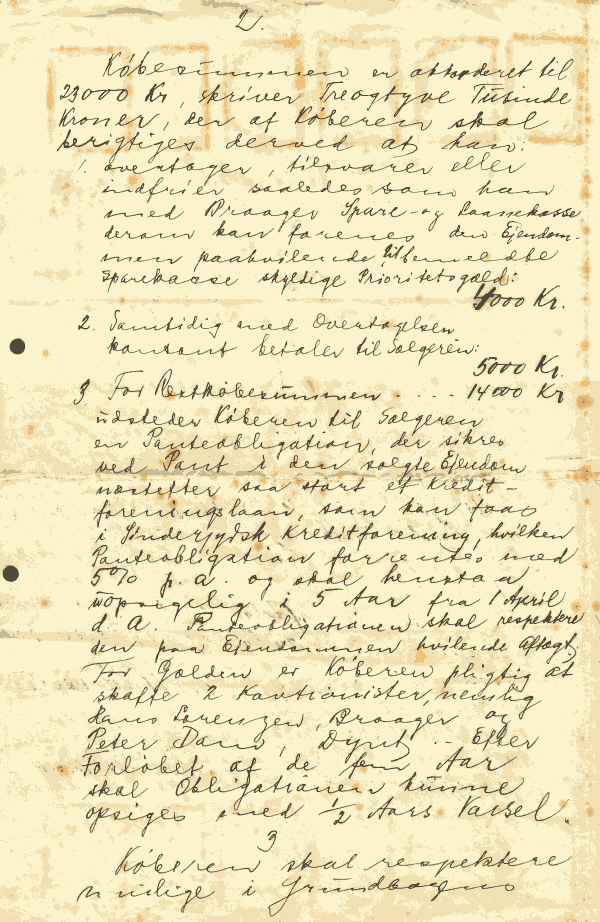 2.
Købesummen er akkorderet til
23000 Kr, skriver Treogtyve Tusinde
Kroner, der af Køberen skal
berigtiges derved at han:
1. overtager, tilsvarer eller
indfrier saaledes som han
med Broager Spare- og Laanekasse
derom kan forenes den Ejendom-
men paahvilende til bemeldte
Sparekasse skyldige Prioritetsgæld:
4000 Kr.
2. Samtidig med Overtagelsen
kontant betaler til Sælgeren:
5000 Kr.
3 For Restkøbesummen . . . . 14000 Kr
udsteder Køberen til Sælgeren
en Panteobligation, der sikres
ved Pant i den solgte Ejendom
næstefter saa stort et Kredit-
foreningslaan, som kan faas
i Sønderjydsk Kreditforening, hvilken
Panteobligation forrentes med
5% p. a. og skal henstaa
uopsigelig i 5 Aar fra 1 April
d. A. Panteobligationen skal respektere
den paa Ejendommen hvilende Aftægt
For Gælden er Køberen pligtig at
skaffe 2 Kautionister, nemlig
Hans Lorenzen, Broager og
Peter Dam, Dynt, -- Efter
Forløbet af de fem Aar
skal Obligationen kunne
opsiges med 1/2 Aars Varsel.
3
Køberen skal respektere
i Grundbogens